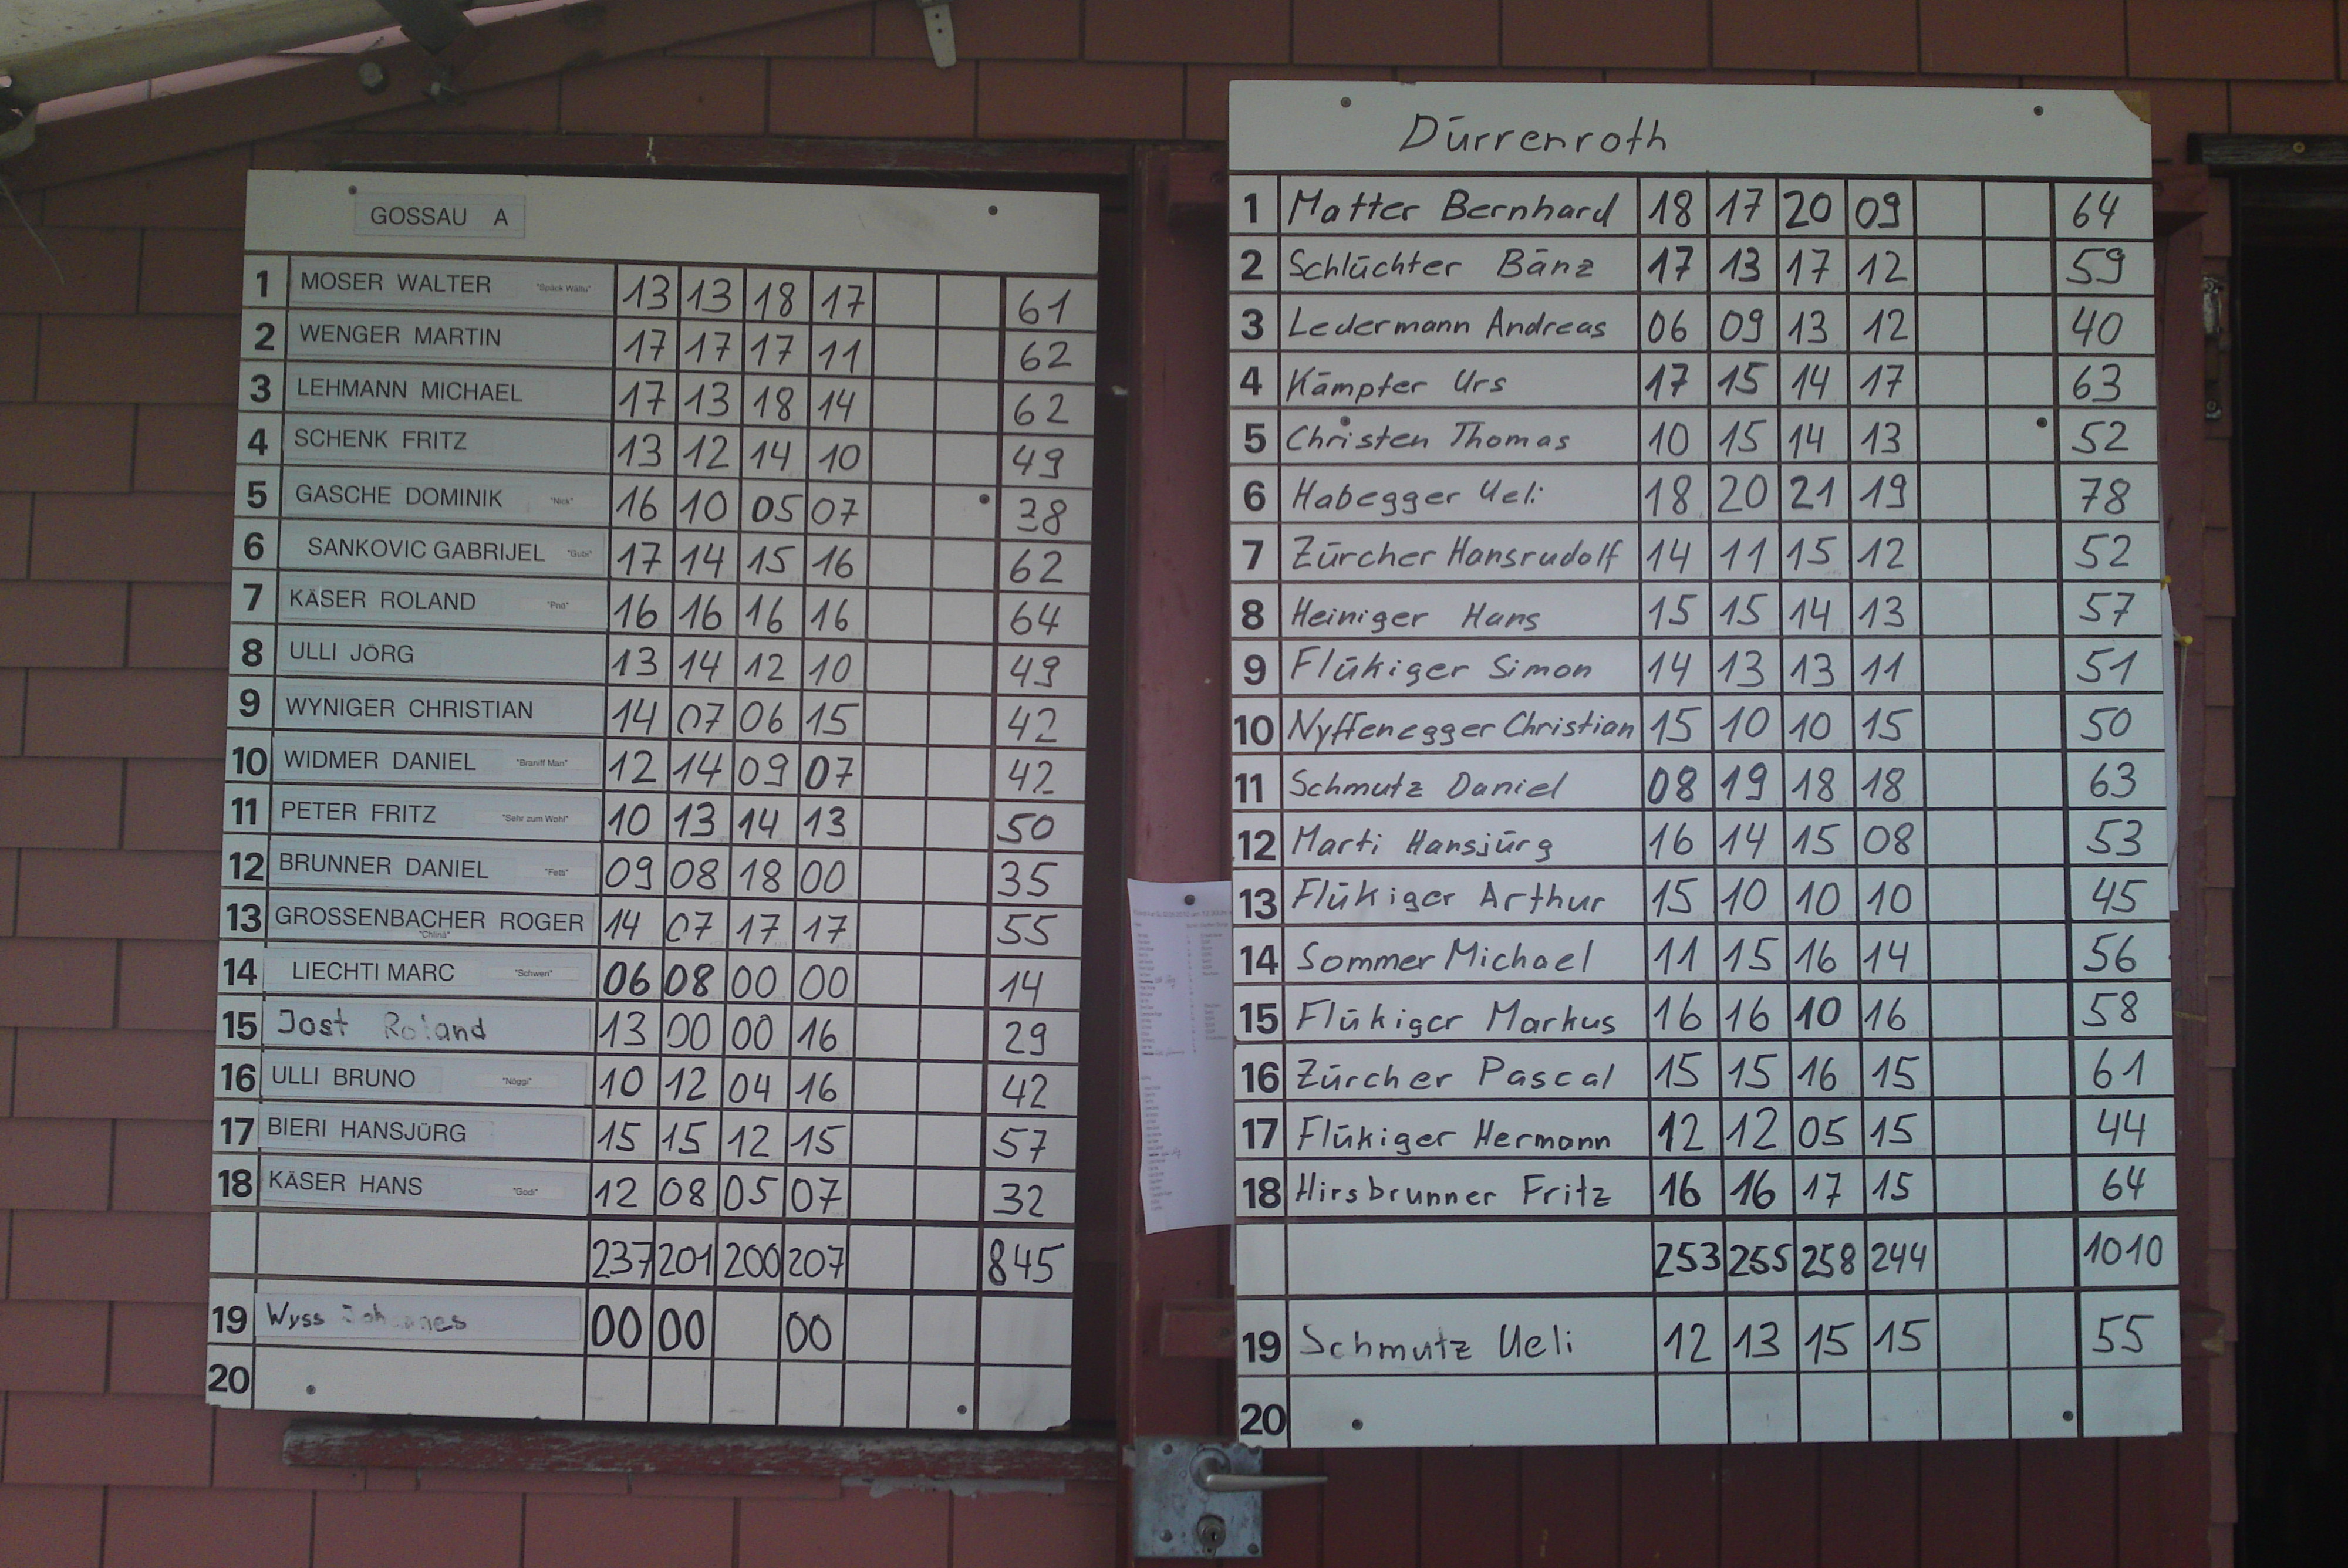 GOSSAU A
1 MOSER WALTER "Späck Wältu" 13 13 18 17 61
2 WENGER MARTIN 17 17 17 11 62
3 LEHMANN MICHAEL 17 13 18 14 62
4 SCHENK FRITZ 13 12 14 10 49
5 GASCHE DOMINIK "Nick" 16 10 05 07 38
6 SANKOVIC GABRIJEL "Gubi" 17 14 15 16 62
7 KÄSER ROLAND "Pnö" 16 16 16 16 64
8 ULLI JÖRG 13 14 12 10 49
9 WYNIGER CHRISTIAN 14 07 06 15 42
10 WIDMER DANIEL "Braniff Man" 12 14 09 07 42
11 PETER FRITZ "Sehr zum Wohl" 10 13 14 13 50
12 BRUNNER DANIEL "Fetti" 09 08 18 00 35
13 GROSSENBACHER ROGER "Chlinä" 14 07 17 17 55
14 LIECHTI MARC "Schweri" 06 08 00 00 14
15 Jost Roland 13 00 00 16 29
16 ULLI BRUNO "Nöggi" 10 12 04 16 42
17 BIERI HANSJÜRG 15 15 12 15 57
18 KÄSER HANS "Godi" 12 08 05 07 32
237 201 200 207 845
19 Wyss Johannes 00 00 00
20
Dürrenroth
1 Matter Bernhard 18 17 20 09 64
2 Schlüchter Bänz 17 13 17 12 59
3 Ledermann Andreas 06 09 13 12 40
4 Kämpfer Urs 17 15 14 17 63
5 Christen Thomas 10 15 14 13 52
6 Habegger Ueli 18 20 21 19 78
7 Zürcher Hansrudolf 14 11 15 12 52
8 Heiniger Hans 15 15 14 13 57
9 Flükiger Simon 14 13 13 11 51
10 Nyffenegger Christian 15 10 10 15 50
11 Schmutz Daniel 08 19 18 18 63
12 Marti Hansjürg 16 14 15 08 53
13 Flükiger Arthur 15 10 10 10 45
14 Sommer Michael 11 15 16 14 56
15 Flükiger Markus 16 16 10 16 58
16 Zürcher Pascal 15 15 16 15 61
17 Flükiger Hermann 12 12 05 15 44
18 Hirsbrunner Fritz 16 16 17 15 64
253 255 258 244 1010
19 Schmutz Ueli 12 13 15 15 55
20